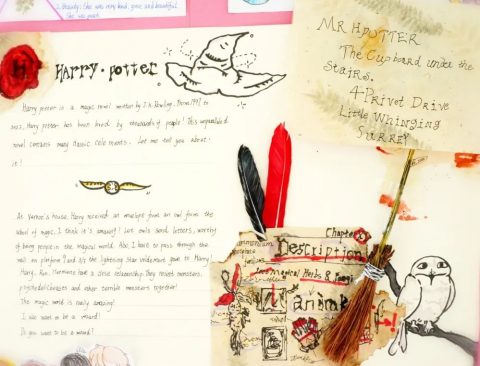 2. Beauty: She was very kind, great and beautiful.
She was great
H
Harry·potter
Harry potter is a magic novel written by J.K. Rowling. From 1997 to
Harry potter has been loved by thousands of people! This unparalleled
novel contains many classic
Let me tell you about
it!
At Vernon's house, Harry received an envelope from an owl form the
school of magic. I think it's amazing! Let owls send letters, worthy
of being people in the magical world. Also, I have to pass through the
wall on platform 9 3/4 the lightning scar Voldemort gave to Harry
Harry, Ron, Hermione have a close relationship. They resist monsters
and other terrible monsters together!
The magic world is really amazing!
I also want to be a wizard!
Do you want to be a wizard?
MR HPOTTER
The Cupboard under the
Stairs.
4-Privet Drive
Little Whinging
SURREY
Chapter
Description
Magical Herbs & Fungi
anima